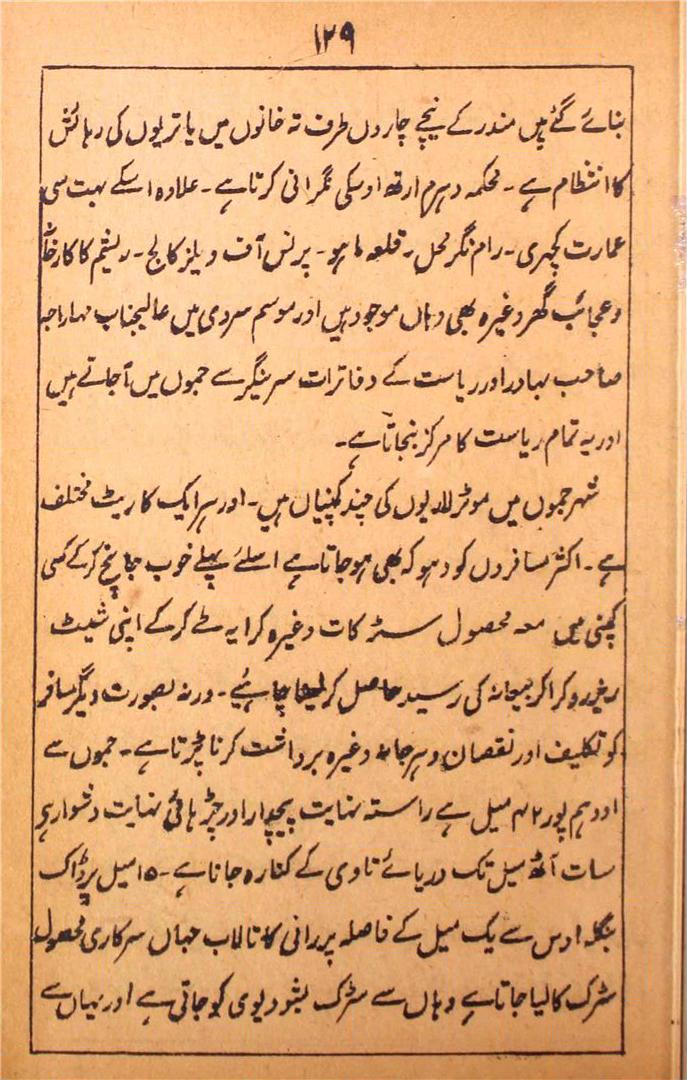 ۱۲۹
بنائے گئے ہیں مندر کے نیچے چاروں طرف تہ خانوں میں یاتریوں کی رہائش
کا انتظام ہے۔ محکمہ دہرم ارتھ اوسکی نگرانی کرتا ہے۔ علاوہ اسکے بہت سی
عمارت کچہری۔ رام نگر محل۔ قلعہ باہو۔ پرنس آف ویلز کالج۔ ریشم کا کارخانہ
و عجائب گھر وغیرہ بھی وہاں موجود ہیں اور موسم سردی میں عالیجناب مہاراجہ
صاحب بہادر اور ریاست کے دفاترات سرینگر سے جموں میں آجاتے ہیں
اور یہ تمام ریاست کا مرکز بنجاتا ہے۔
شہر جموں میں موٹر لاریوں کی چند کمپنیاں ہیں۔ اور ہر ایک کا ریٹ مختلف
ہے۔ اکثر مسافروں کو دہوکہ بھی ہوجاتا ہے اسلئے پہلے خوب جانچ کرکے کسی
کمپنی میں معہ محصول سڑکات وغیرہ کرایہ طے کرکے اپنی شیٹ
ریزرو کراکر بیعانہ کی رسید حاصل کرلینا چاہئیے۔ ورنہ بصورت دیگر مسافر
کو تکلیف اور نقصان و ہرجانہ وغیرہ برداشت کرنا پڑتا ہے۔ جموں سے
اودہم پور ۴۲ میل ہے راستہ نہایت پیچدار اور چڑہائی نہایت دشوار ہے
سات آٹھ میل تک دریائے تاوی کے کنارہ جانا ہے۔ ۱۵ میل پر ڈاک
بنگلہ اوس سے یک میل کے فاصلہ پر رانی کا تالاب جہاں سرکاری محصول
سڑک کا لیا جاتا ہے وہاں سے سڑک بشنو دیوی کو جاتی ہے اور یہاں سے